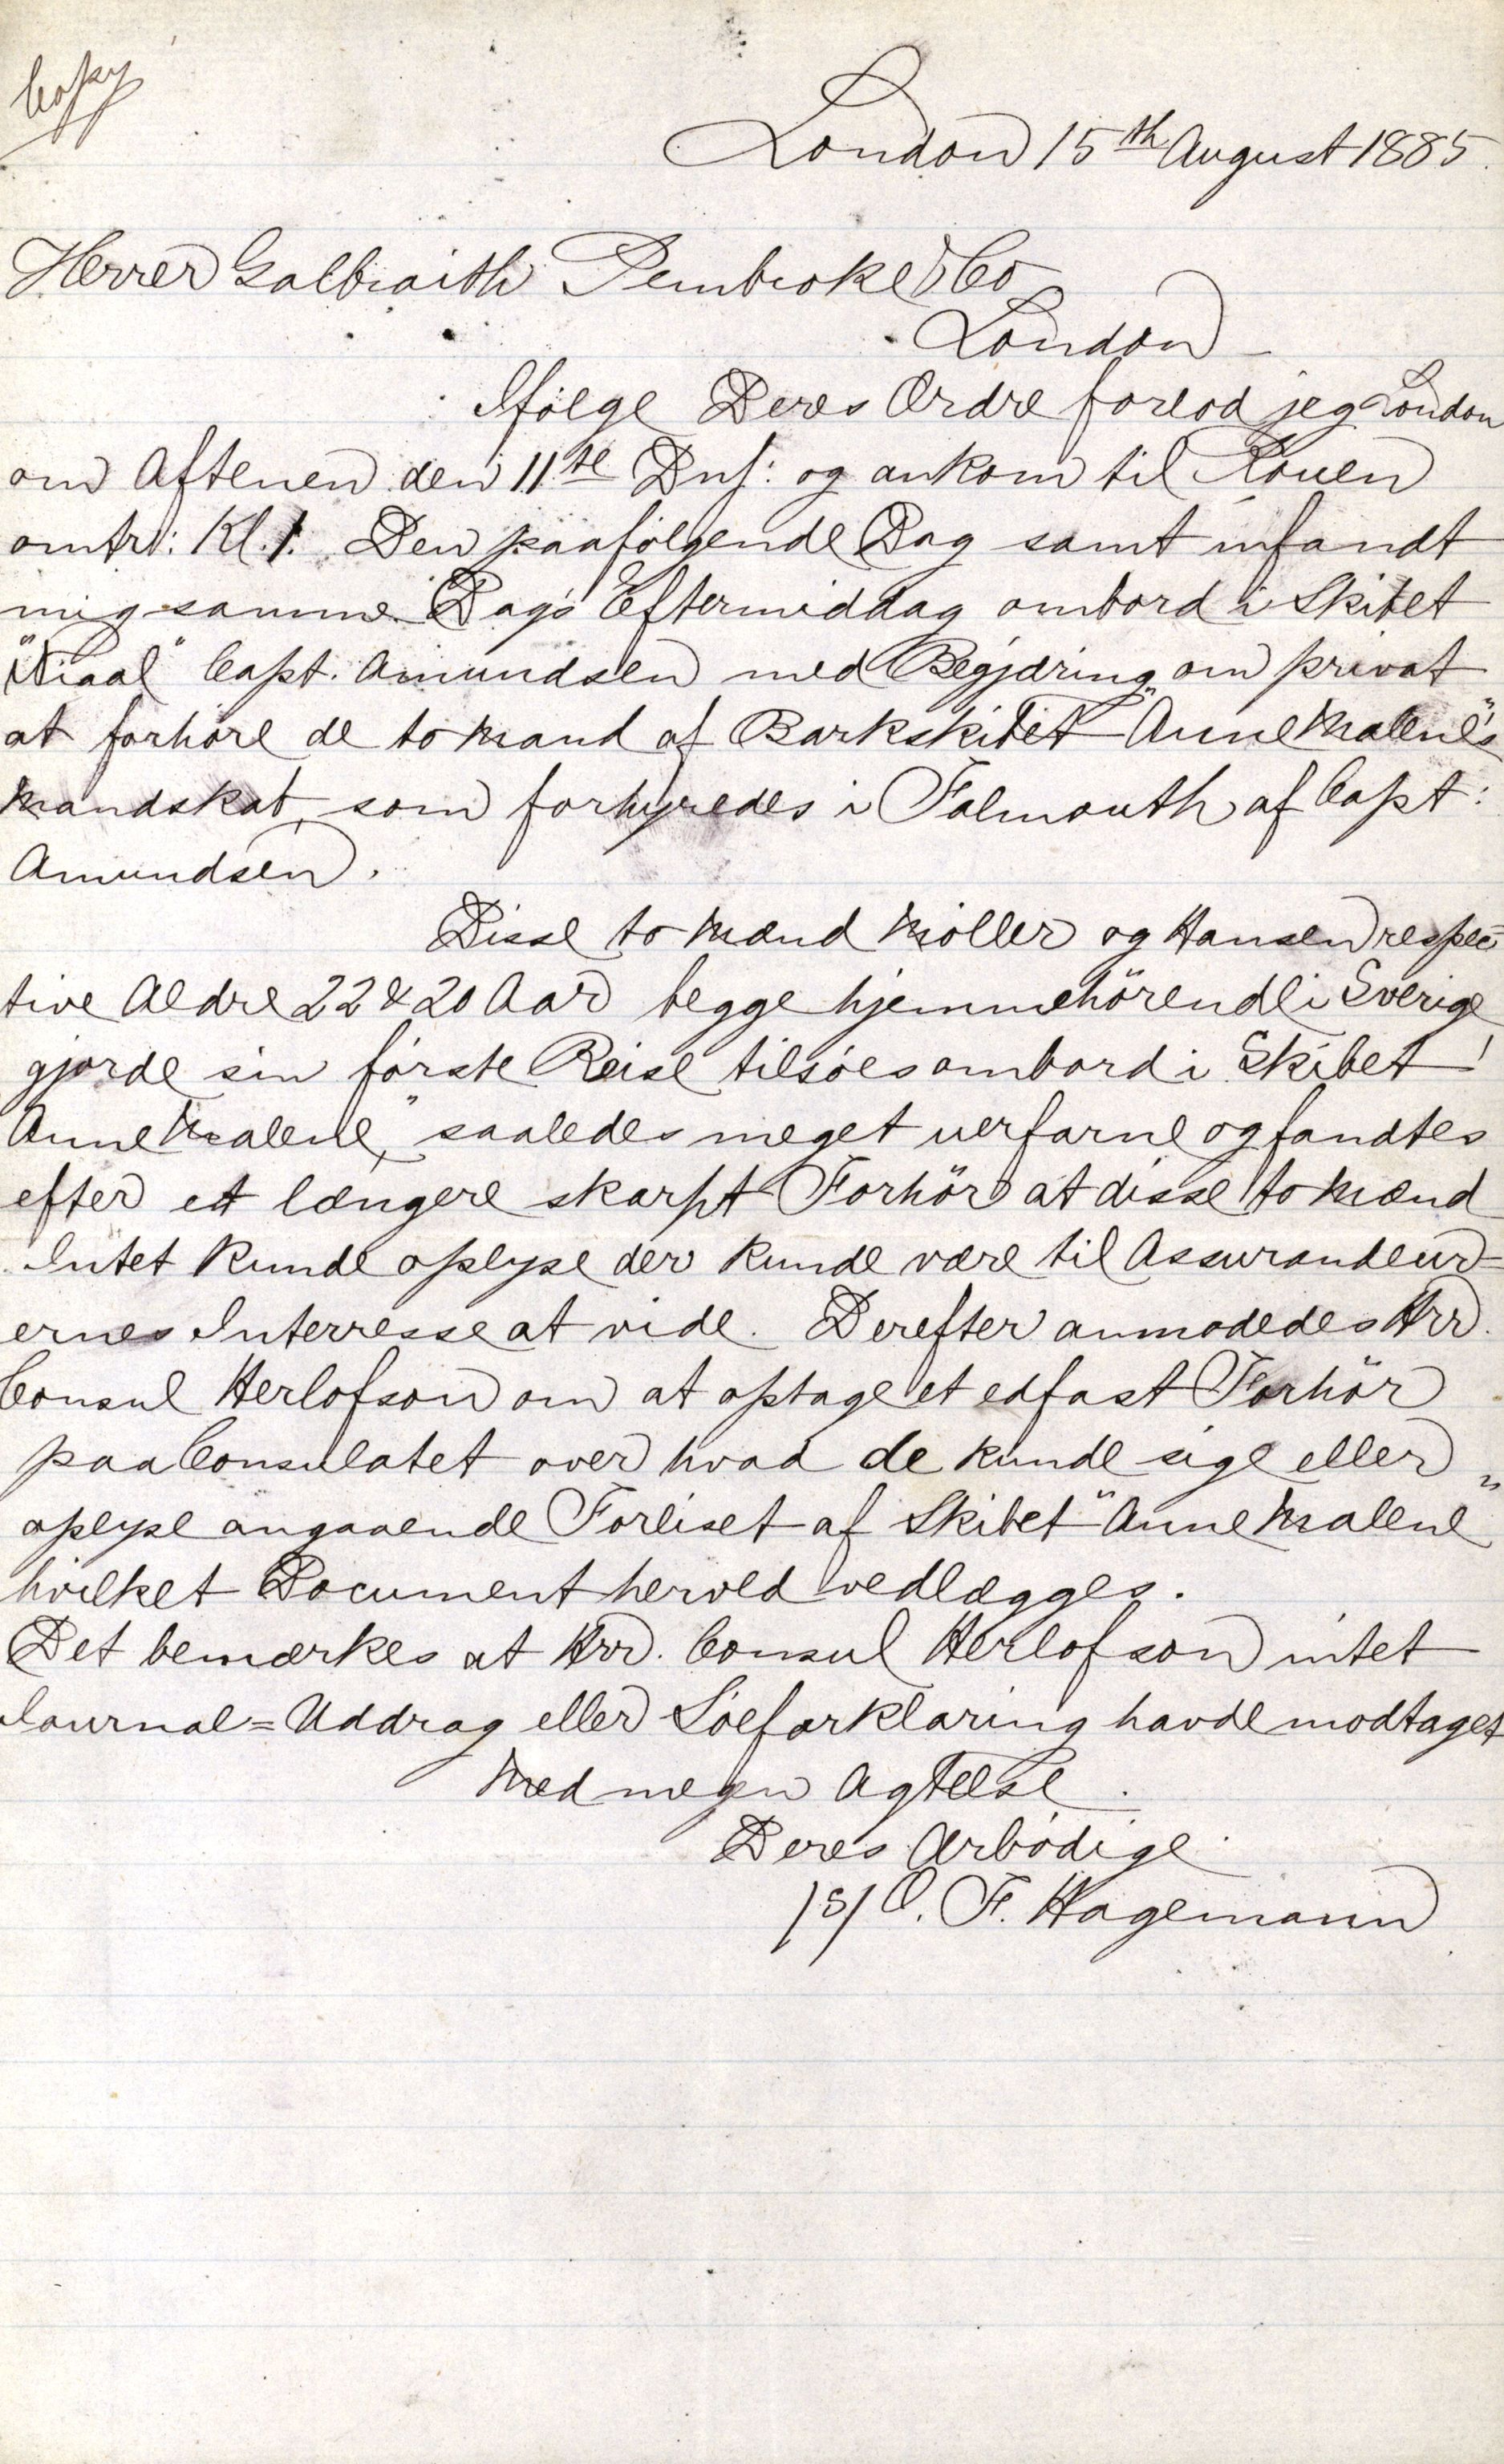 Copy
London 15th August 1885.
Herrer Galbraith Pembroke & Co
London
Ifölge Deres Ordre forlod jeg London
om Aftenen den 11te Ds: og ankom til Rouen
omtr: Kl. 1. Den paafölgende Dag samt infandt
mig samme Dags Eftermiddag ombord i Skibet
"Niaal" Capt. Amundsen med Begjæring om privat
at forhöre de to Mand af Barkskibet "Anne Malene's"
Mandskab som forhyredes i Falmouth af Capt:
Amundsen.
Disse to Mænd Möller og Hansen respec=
tive Aldre 22 & 20 Aar begge hjemmehörende i Sverige
gjorde sin förste Reise tilsöes ombord i Skibet "
Anne Malene" saaledes meget uerfarne og fandtes
efter et længere skarpt Forhör at disse to Mænd
Intet kunde oplyse der kunde være til Assurandeur=
ernes Interresse at vide. Derefter anmodedes Hrr.
Consul Herlofson om at optage et edfast Forhör
paa Consulatet over hvad de kunde sige eller
oplyse angaaende Forliset af Skibet "Anne Malene"
hvilket Document herved vedlægges.
Det bemærkes at Hrr. Consul Herlofson intet
Journal=Uddrag eller Söeforklaring havde modtaget
Med megen Agtelse.
Deres Ærbödige
/s/ O. F. Hagemann